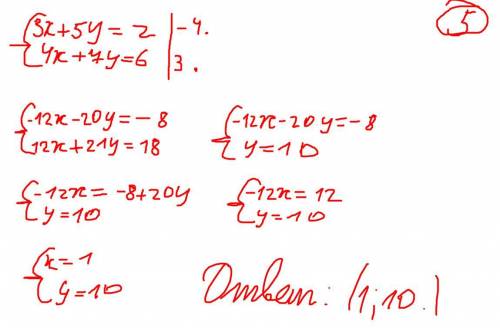 5
{3x+5y=2 | -4.
{4x+7y=6 | 3.
{-12x-20y=-8
{12x+21y=18
{-12x-20y=-8
{y=10
{-12x=-8+20y
{y=10
{-12x=12
{y=10
{x=1
{y=10
Ответ: (1;10.)